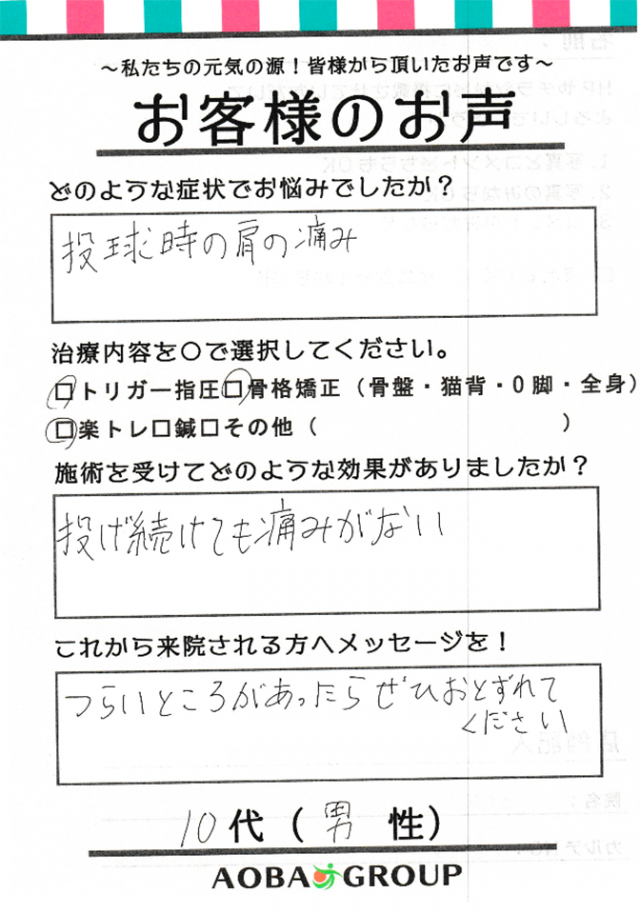 ～私たちの元気の源！皆様から頂いたお声です～
お客様のお声
どのような症状でお悩みでしたか？
投球時の肩の痛み
治療内容を〇で選択してください。
□トリガー指圧□骨格矯正（骨盤・猫背・O脚・全身）
□楽トレ□鍼□その他（　　　　　　　　　　　）
施術を受けてどのような効果がありましたか？
投げ続けても痛みがない
これから来院される方へメッセージを！
つらいところがあったらぜひおとずれて
ください
10代（男 性）
AOBA GROUP